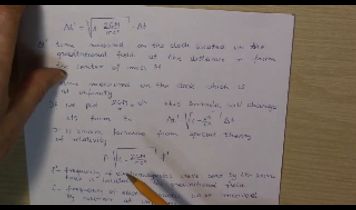 Δt' = √1 - 2GM/rc² · Δt
Δt' time measured on the clock located in the
gravitational field at the distance r from
the center of mass M
time measured on the clock which is
at infinity
If we put 2GM/r = v² this formula will change
its form to Δt' = √1 - v²/c² Δt
It is known formula from special theory
of relativity
f = √1 - 2GM/rc² f'
f' - frequency of electromagnetic wave sent by the
located in gravitational field
f - frequency of electromagnetic wave received
by at